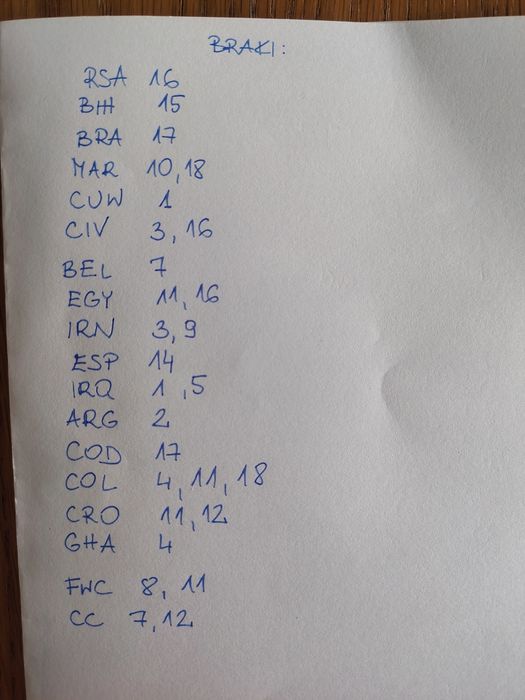 BRAKI:
RSA 16
BIH 15
BRA 17
MAR 10,18
CUW 1
CIV 3, 16
BEL 7
EGY 11, 16
IRN 3,9
ESP 14
IRQ 1 ,5
ARG 2
COD 17
COL 4, 11, 18
CRO 11, 12
GHA 4
FWC 8, 11
CC 7,12